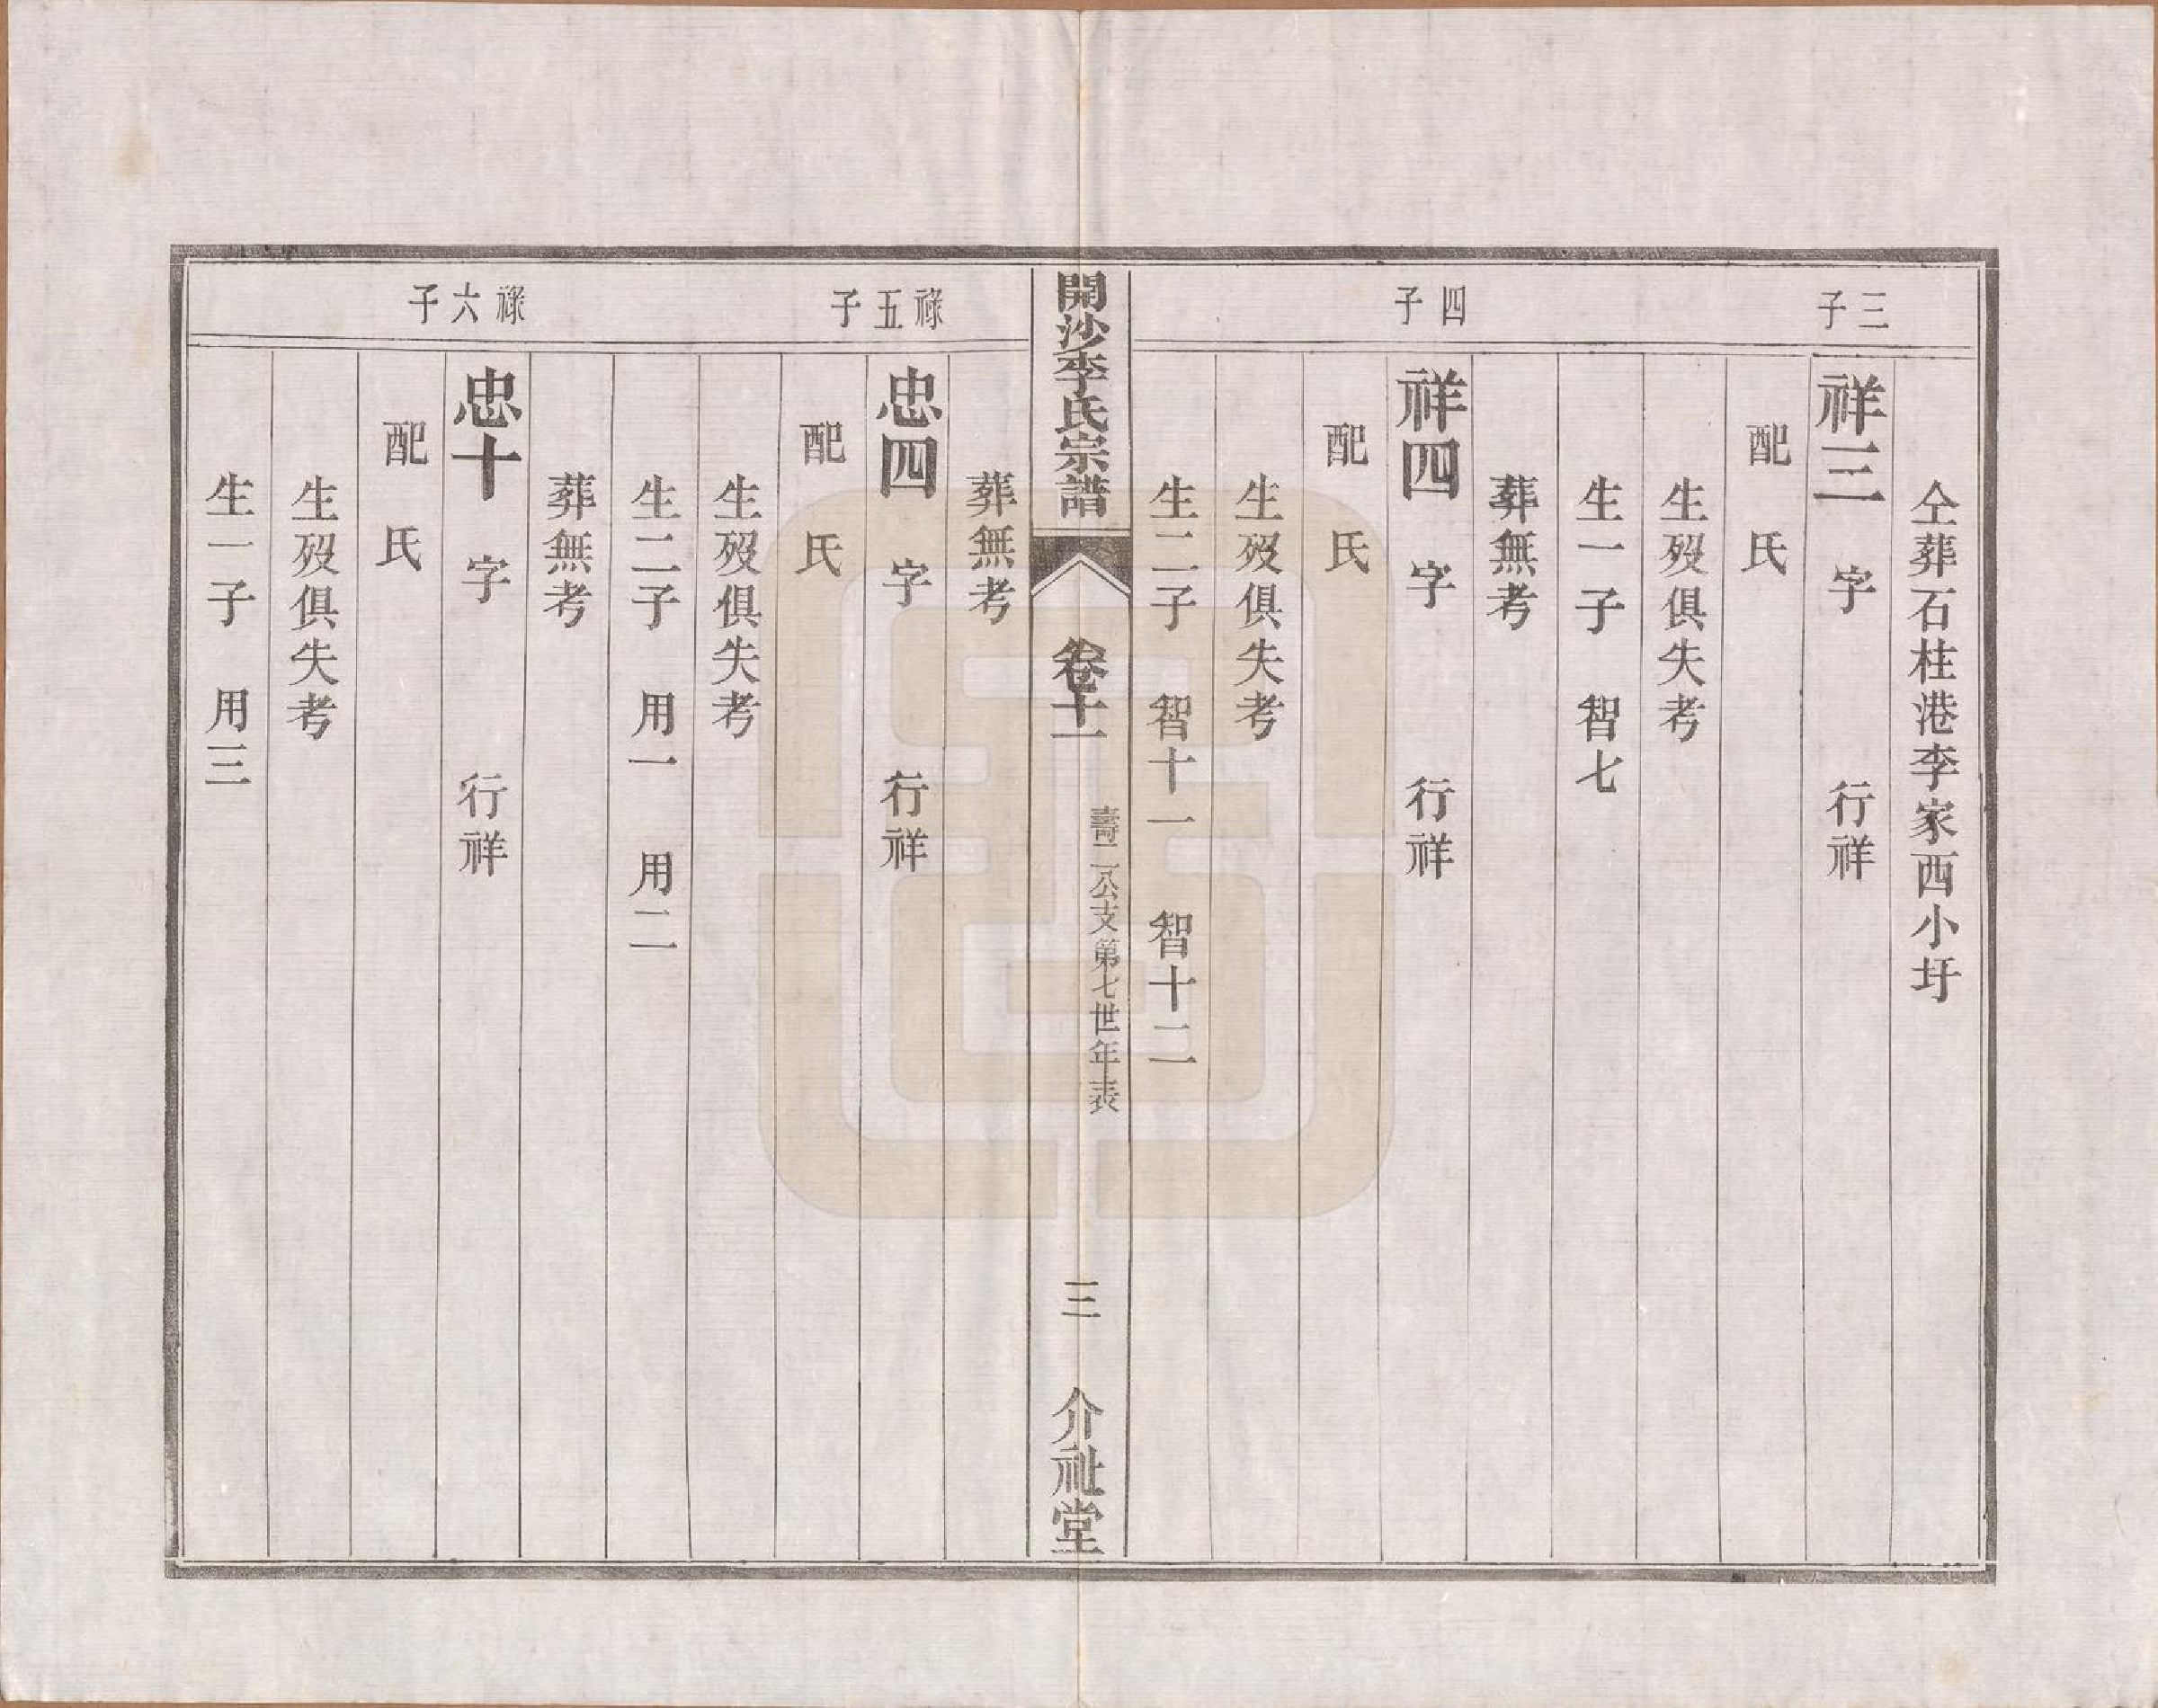 仝葬石柱港李家西小圩
三子
祥三　字　行祥
配　氏
生歿俱失考
生一子　智七
葬無考
四子
祥四　字　行祥
配　氏
生歿俱失考
生二子　智十一　智十二
開沙李氏宗譜　卷十一　壽二公支第七世年表　三　介祉堂
葬無考
祿五子
忠四　字　行祥
配　氏
生歿俱失考
生二子　用一　用二
葬無考
祿六子
忠十　字　行祥
配　氏
生歿俱失考
生一子　用三